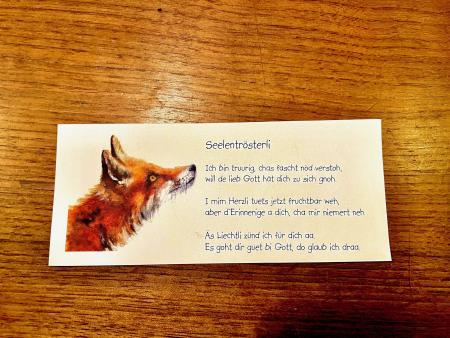 Seelentrösterli
Ich bin truurig, chas fascht nöd verstoh,
will de lieb Gott hät dich zu sich gnoh.
I mim Herzli tuets jetzt fruchtbar weh,
aber d'Erinnerige a dich, cha mir niemert neh.
Äs Liechtli zünd ich für dich aa,
Es goht dir guet bi Gott, do glaub ich draa.